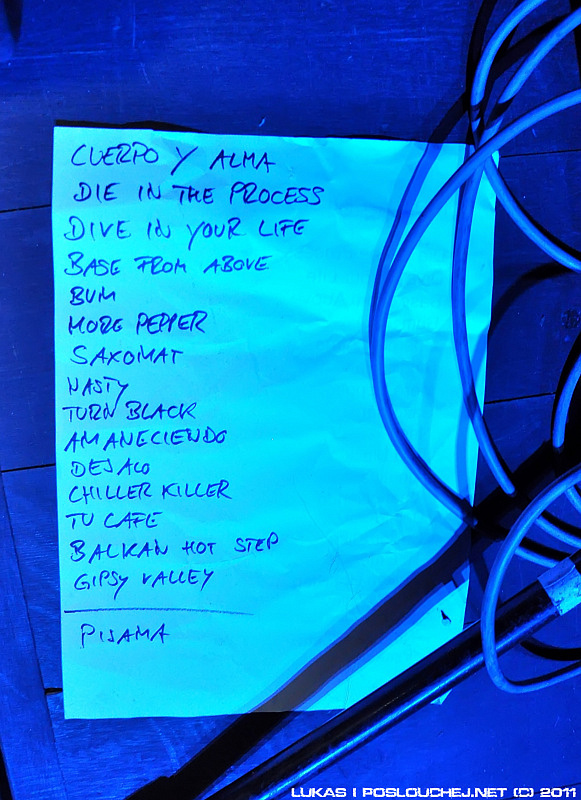 CUERPO Y ALMA
DIE IN THE PROCESS
DIVE IN YOUR LIFE
BASE FROM ABOVE
BUM
MORE PEPPER
SAXOMAT
NASTY
TURN BLACK
AMANECIENDO
DEJALO
CHILLER KILLER
TU CAFE
BALKAN HOT STEP
GIPSY VALLEY
PIJAMA
LUKAS | POSLOUCHEJ.NET (C) 2011